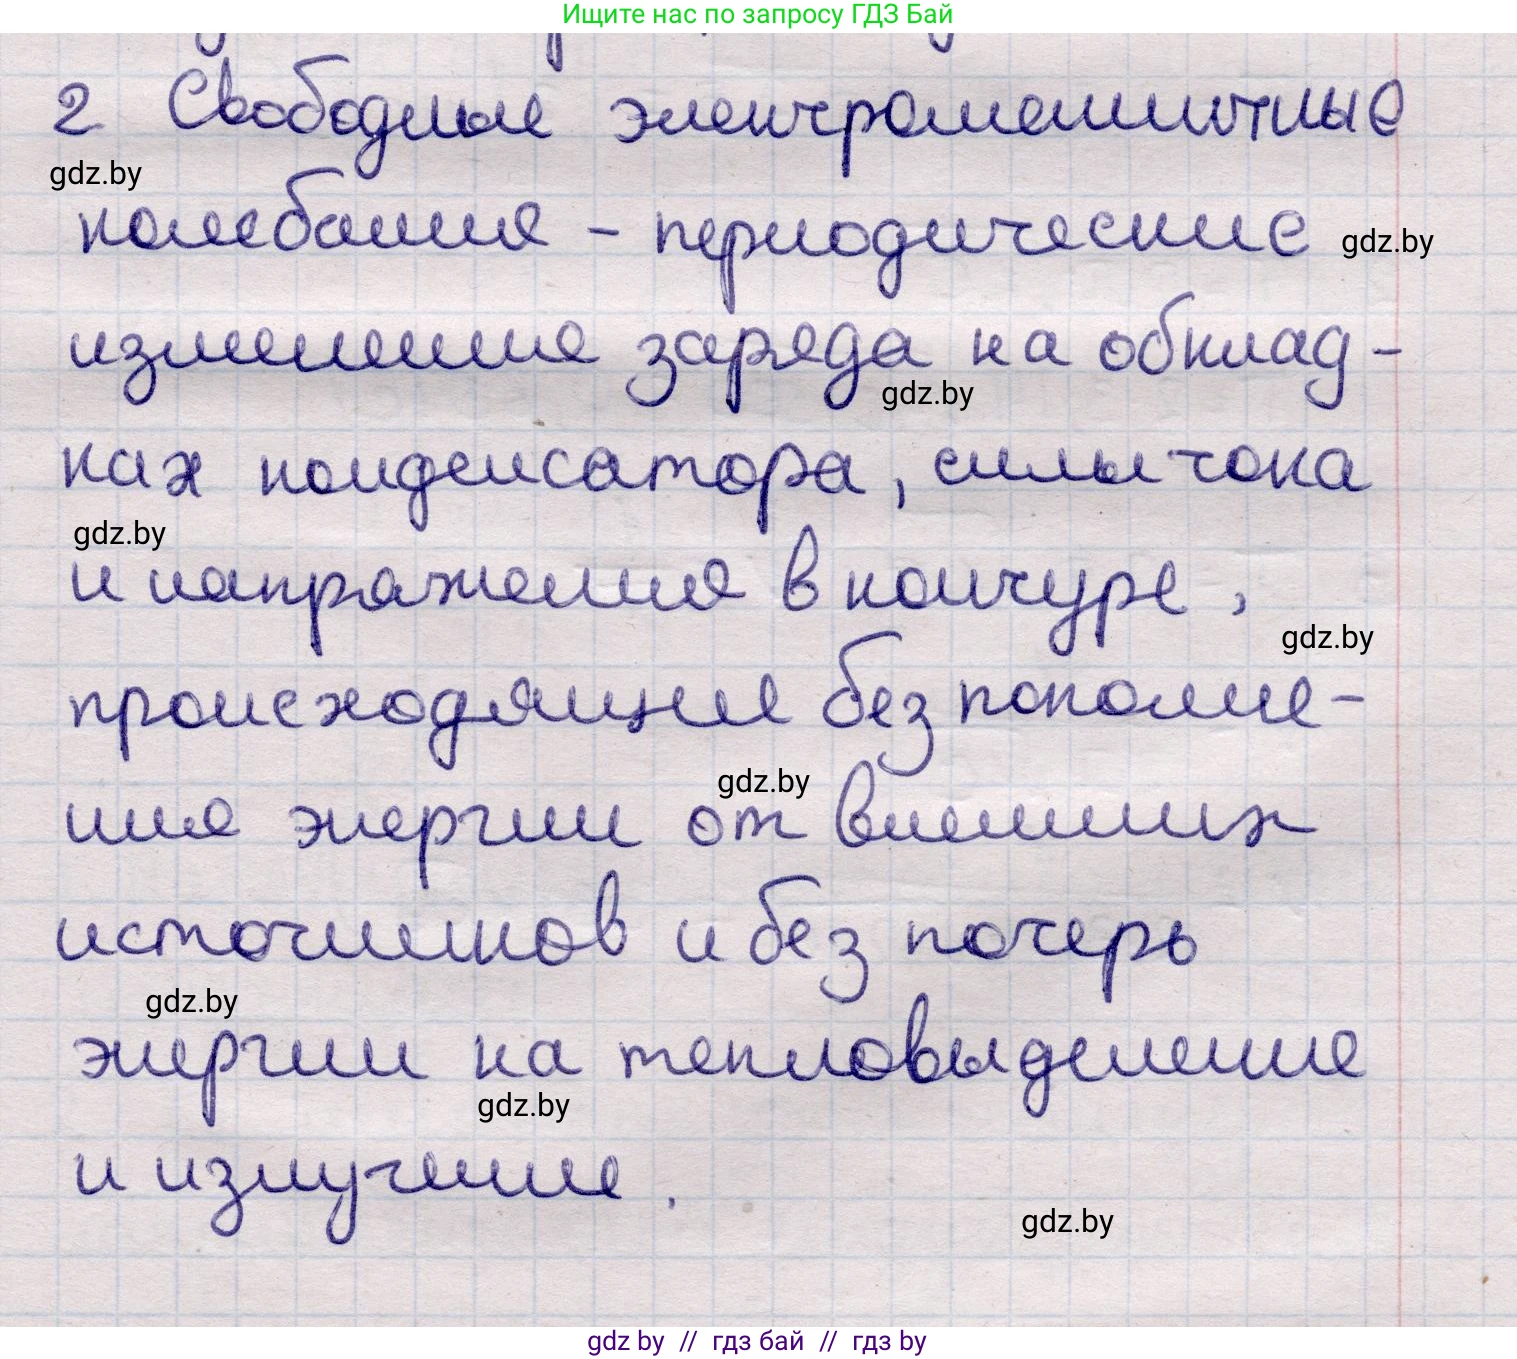 Ищите нас по запросу ГДЗ Бай
2 Свободные электромагнитные
gdz.by
колебания - периодические
gdz.by
изменения заряда на обклад-
gdz.by
ках конденсатора, силы тока
gdz.by
и напряжения в контуре,
gdz.by
происходящие без пополне-
gdz.by
ния энергии от внешних
источников и без потерь
gdz.by
энергии на тепловыделение
gdz.by
и излучение.
gdz.by
gdz by // гдз бай // гдз by